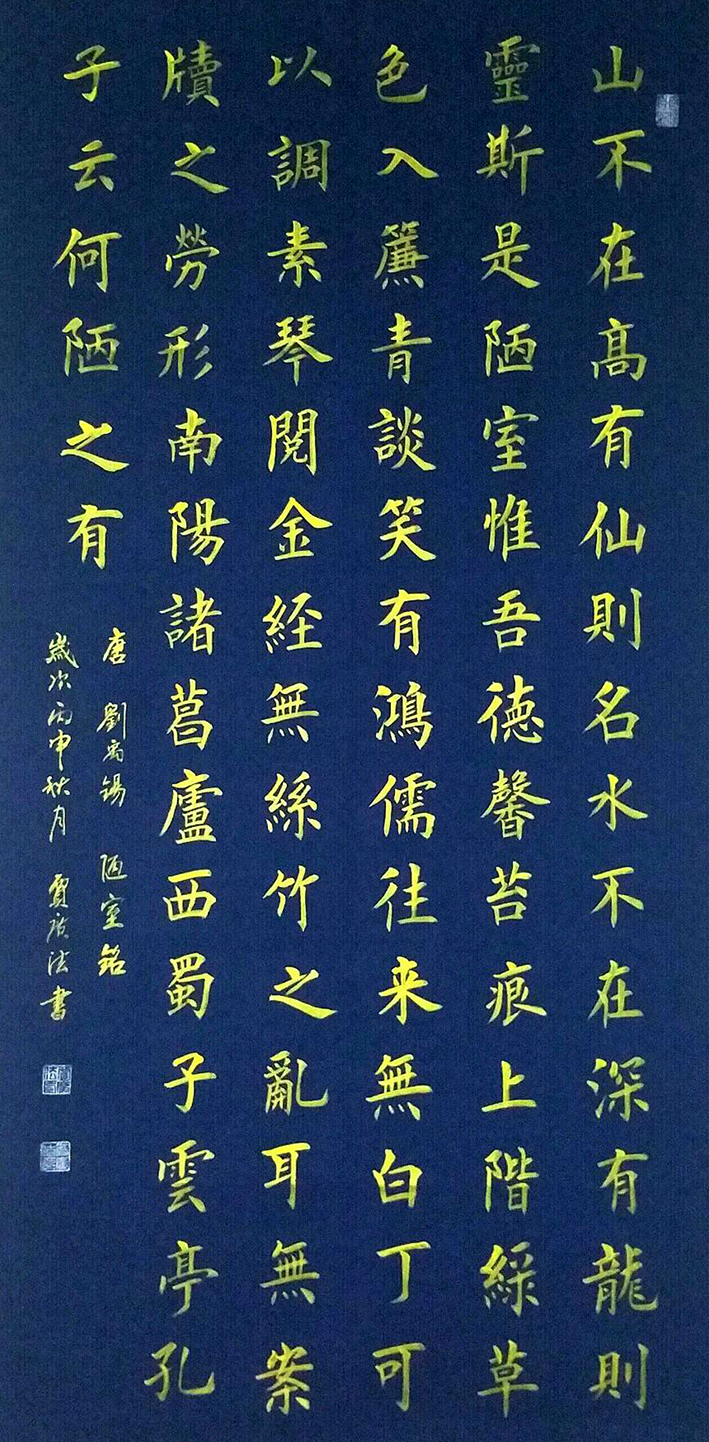 山不在高有仙則名水不在深有龍則
靈斯是陋室惟吾德馨苔痕上階綠草
色入簾青談笑有鴻儒往来無白丁可
以調素琴閱金経無絲竹之亂耳無案
牘之勞形南陽諸葛廬西蜀子雲亭孔
子云何陋之有
唐 劉禹錫 陋室銘
歲次丙申秋月 賈廣法書